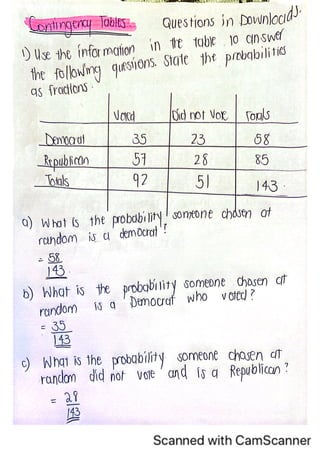 Contingency Tables. Questions in Downloads.
1) Use the information in the table to answer
the following questions. State the probabilities
as fractions.
Voted Did not Vote Totals
Democrat 35 23 58
Republican 57 28 85
Totals 92 51 143.
a) What is the probability someone chosen at
random is a democrat?
= 58
143.
b) What is the probability someone chosen at
random is a Democrat who voted?
= 35
143
c) What is the probability someone chosen at
random did not vote and is a Republican?
= 28
143
Scanned with CamScanner